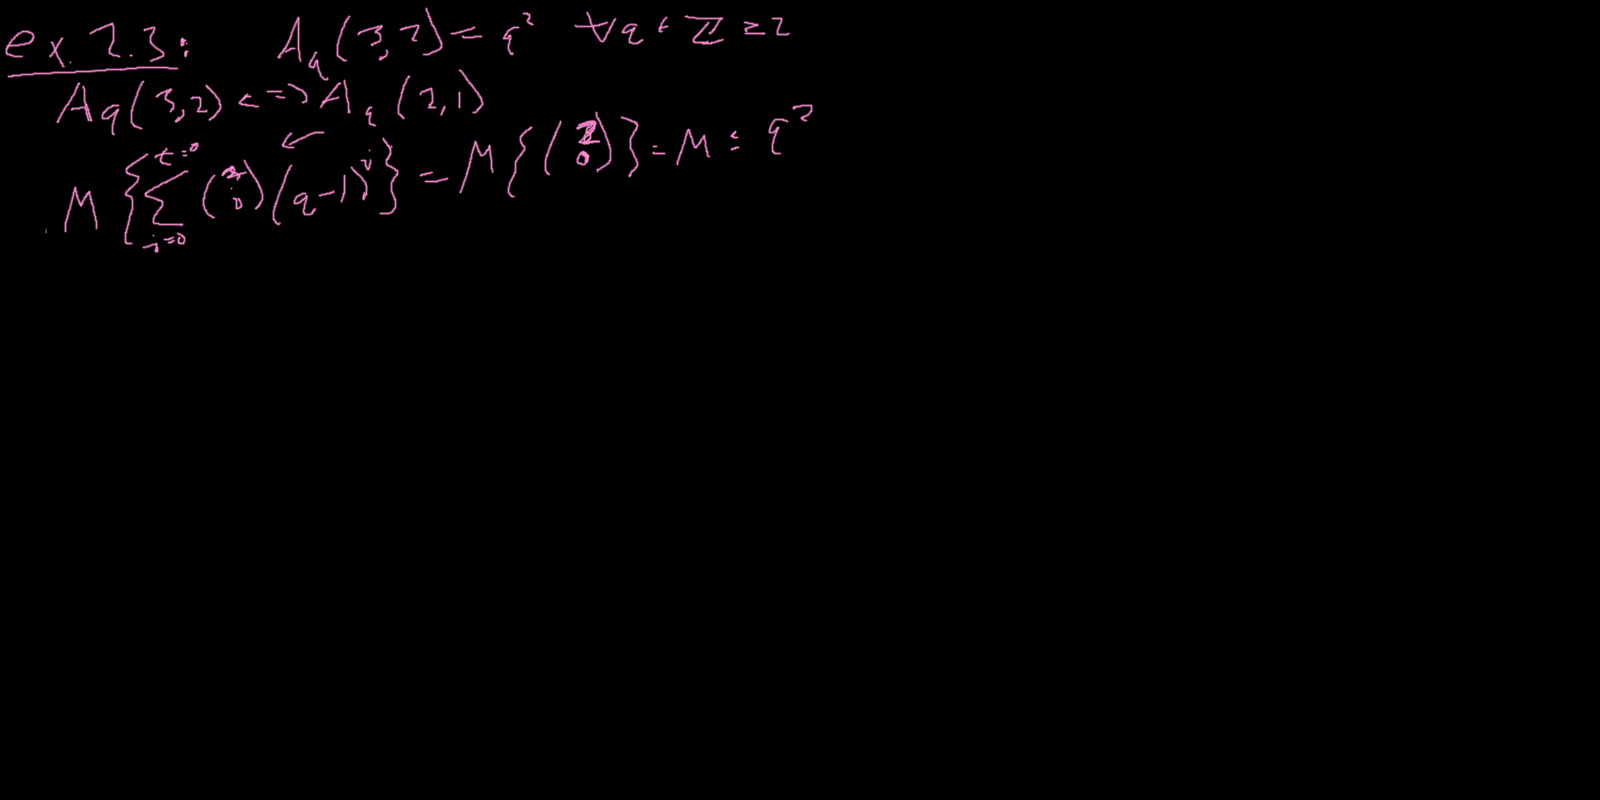 ex. 2.3: A_q(3,2) = q^2 ∀q ∈ ℤ ≥ 2
A_q(3,2) <=> A_q(2,1)
M { ∑_{i=0}^{t=0} (2 i) (q-1)^i } = M { (2 0) } = M ≤ q^2